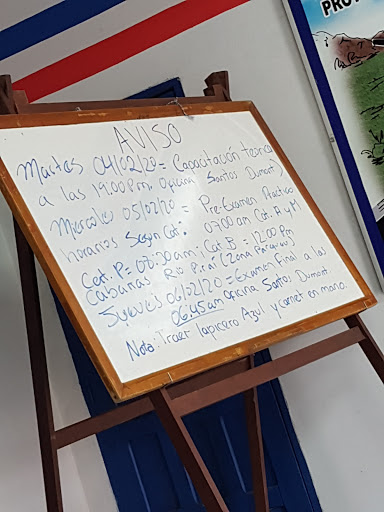 PROT
AVISO
Martes 04/02/20 = Capacitación teorica
a las 19:00 Pm. Oficina Santos Dumont)
Miercoles 05/02/20 = Pre-Examen Practico
horarios Segun Cat. 07:00 am Cat. A y M
Cat. P = 08:30 am; Cat. B = 12:00 Pm
Cabañas Rio Pirai (Zona Parquius)
Jueves 06/02/20 = Examen Final a las
06:45 am oficina Santos Dumont.
Nota: Traer lapicero Azul y carnet en mano.